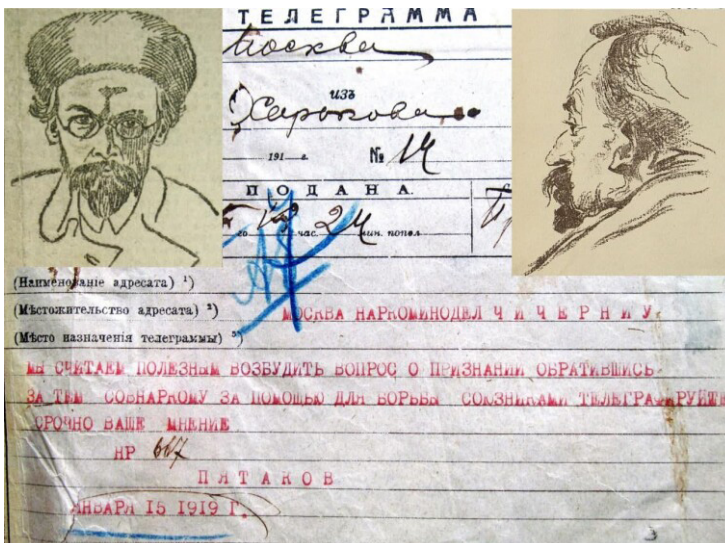 ТЕЛЕГРАММА
Москва
изъ
Харькова
191 г. № 14
ПОДАНА.
го час. 24 мин. попол.
(Наименованіе адресата) ¹)
(Мѣстожительство адресата) ²) МОСКВА НАРКОМИНОДЕЛ Ч И Ч Е Р Н И У
(Мѣсто назначенія телеграммы) ³)
МЫ СЧИТАЕМ ПОЛЕЗНЫМ ВОЗБУДИТЬ ВОПРОС О ПРИЗНАНИИ ОБРАТИВШИСЬ
ЗА ТЕМ СОВНАРКОМУ ЗА ПОМОЩЬЮ ДЛЯ БОРЬБЫ СОЮЗНИКАМИ ТЕЛЕГРАФИРУЙТЕ
СРОЧНО ВАШЕ МНЕНИЕ
НР 667
П Я Т А К О В
ЯНВАРЯ 15 1919 Г.
3